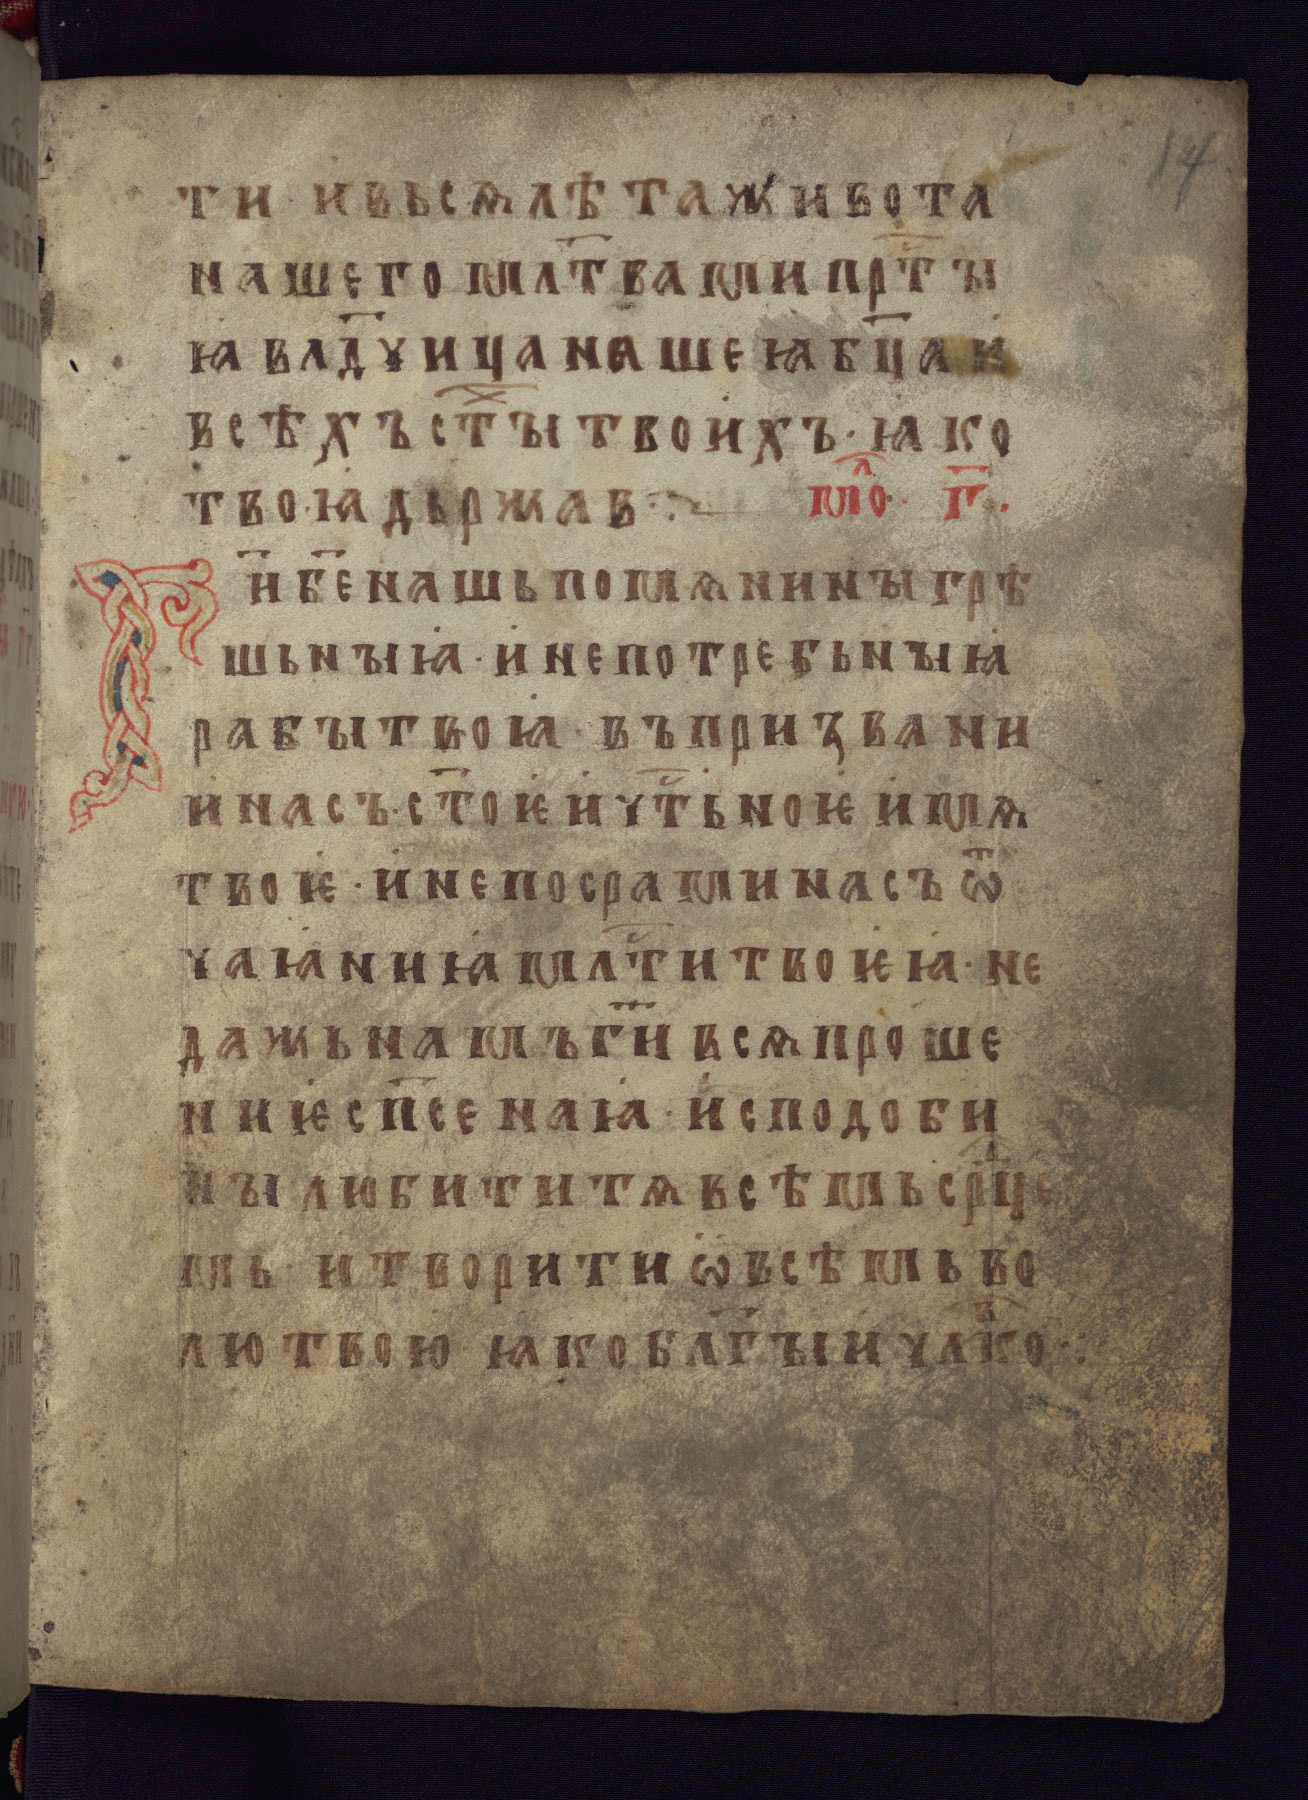 14
ти · и вьсѧ лѣта живота
нашего мл҃твами прⷭ҇ты
ꙗ влд҃чица нашеꙗ бц҃а и
всѣхъ ст҃ы твоихъ · ꙗко
твоꙗ държав ⁘ мо̑ⷧ · г҃ ·
Г҃и б҃е нашь помѧни ны грѣ
шьныꙗ · и непотребьныꙗ
рабы твоꙗ · въ призвани
и насъ · ст҃оѥ и чⷭ҇тьноѥ имѧ
твоѥ · и не посрами насъ ѿ
чаꙗниꙗ млⷭ҇ти твоѥꙗ · не
дажь намъ г҃и всѧ проше
ниѥ сп҃сенаꙗ · и сподоби
ны любити тѧ всѣмь срⷣце
мь · и творити ѡ всѣмь во
лю твою · ꙗко бл҃гыи и члⷡ҇ко ⁘